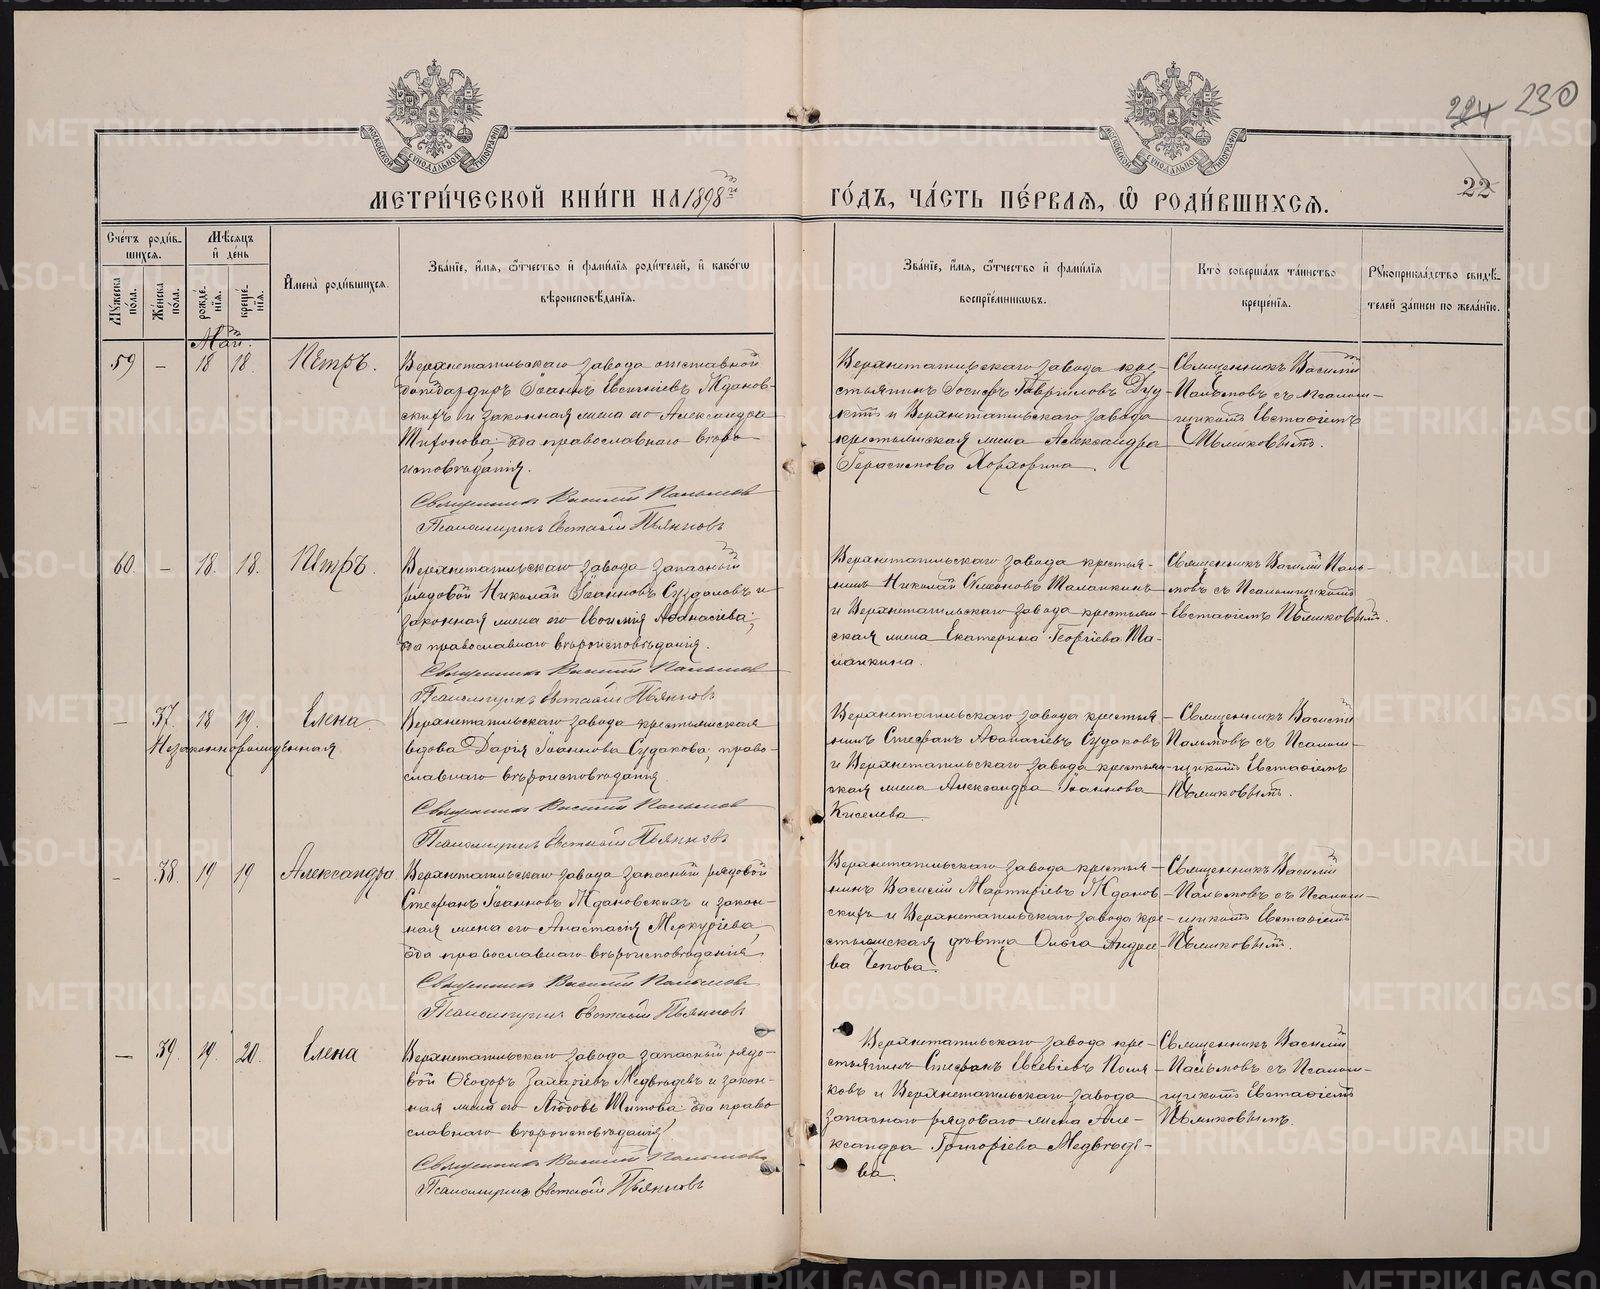 224 230
22
МЕТРИ́ЧЕСКОЙ КНИ́ГИ НА 1898й ГО́ДЪ, ЧА́СТЬ ПЕ́РВАѦ, Ѿ РОДИ́ВШИХСѦ.
Сче́тъ роди́в-
шихся.
Му́жеска по́ла.
Же́нска по́ла.
Мѣ́сяцъ и҆ де́нь
рожде́-нїя.
креще́-нїя.
И҆мена̀ роди́вшихся.
Зва́нїе, и҆́мя, ѻ҆́тчество и҆ фамѝлїя роди́телей, и҆ како́гѡ
вѣроисповѣ́данїя.
Зва́нїе, и҆́мя, ѻ҆́тчество и҆ фамѝлїя
воспрїе́мникѡвъ.
Кто̀ соверша́лъ та́инство
креще́нїя.
Рꙋкоприкла́дство свидѣ́-
телей за́писи по жела́нїю.
Май.
59 — 18 18. Петръ.
Верхнетагильскаго завода отставной
бомбардиръ Іоаннъ Евсигніевъ Жданов-
скихъ и законная жена его Александра
Тихонова; оба православнаго вѣро-
исповѣданія.
Священникъ Василій Пальмовъ
Псаломщикъ Евстафій Пьянковъ
Верхнетагильскаго завода кре-
стьянинъ Іосифъ Гавріиловъ
и Верхнетагильскаго завода
крестьянская жена Александра
Герасимова
Священникъ Василій
Пальмовъ съ псалом-
щикомъ Евстафіемъ
Пьянковымъ.
60. — 18. 18. Петръ.
Верхнетагильскаго завода запасный
рядовой Николай Іоанновъ Суздаловъ и
законная жена его Евфимія Афанасіева;
оба православнаго вѣроисповѣданія.
Священникъ Василій Пальмовъ
Псаломщикъ Евстафій Пьянковъ
Верхнетагильскаго завода крестья-
нинъ Николай Симеоновъ Маланкинъ
и Верхнетагильскаго завода крестьян-
ская жена Екатерина Георгіева Ма-
ланкина.
Священникъ Василій Паль-
мовъ съ Псаломщикомъ
Евстафіемъ Пьянковымъ.
— 37. 18 19. Елена
Незаконнорожденная
Верхнетагильскаго завода крестьянская
вдова Дарія Іоаннова Судакова; право-
славнаго вѣроисповѣданія.
Священникъ Василій Пальмовъ
Псаломщикъ Евстафій Пьянковъ
Верхнетагильскаго завода крестья-
нинъ Стефанъ Афанасіевъ Судаковъ
и Верхнетагильскаго завода крестьян-
ская жена Александра Іоаннова
Киселева
Священникъ Василій
Пальмовъ съ Псалом-
щикомъ Евстафіемъ
Пьянковымъ.
— 38. 19 19 Александра
Верхнетагильскаго завода запасный рядовой
Стефанъ Іоанновъ Ждановскихъ и закон-
ная жена его Анастасія Меркуріева,
оба православнаго вѣроисповѣданія.
Священникъ Василій Пальмовъ
Псаломщикъ Евстафій Пьянковъ
Верхнетагильскаго завода крестья-
нинъ Василій Мартиріевъ Жданов-
скихъ и Верхнетагильскаго завода кре-
стьянская дѣвица Ольга Андрее-
ва
Священникъ Василій
Пальмовъ съ Псалом-
щикомъ Евстафіемъ
Пьянковымъ.
— 39. 19. 20. Елена
Верхнетагильскаго завода запасный рядо-
вой Ѳеодоръ Медвѣдевъ и закон-
ная жена его Любовь Титова оба право-
славнаго вѣроисповѣданія
Священникъ Василій Пальмовъ
Псаломщикъ Евстафій Пьянковъ
Верхнетагильскаго завода кре-
стьянинъ Стефанъ Евсевіевъ Поля-
ковъ и Верхнетагильскаго завода
запаснаго рядоваго жена Але-
ксандра Григоріева Медвѣде-
ва.
Священникъ Василій
Пальмовъ съ Псалом-
щикомъ Евстафіемъ
Пьянковымъ.
METRIKI.GASO-URAL.RU